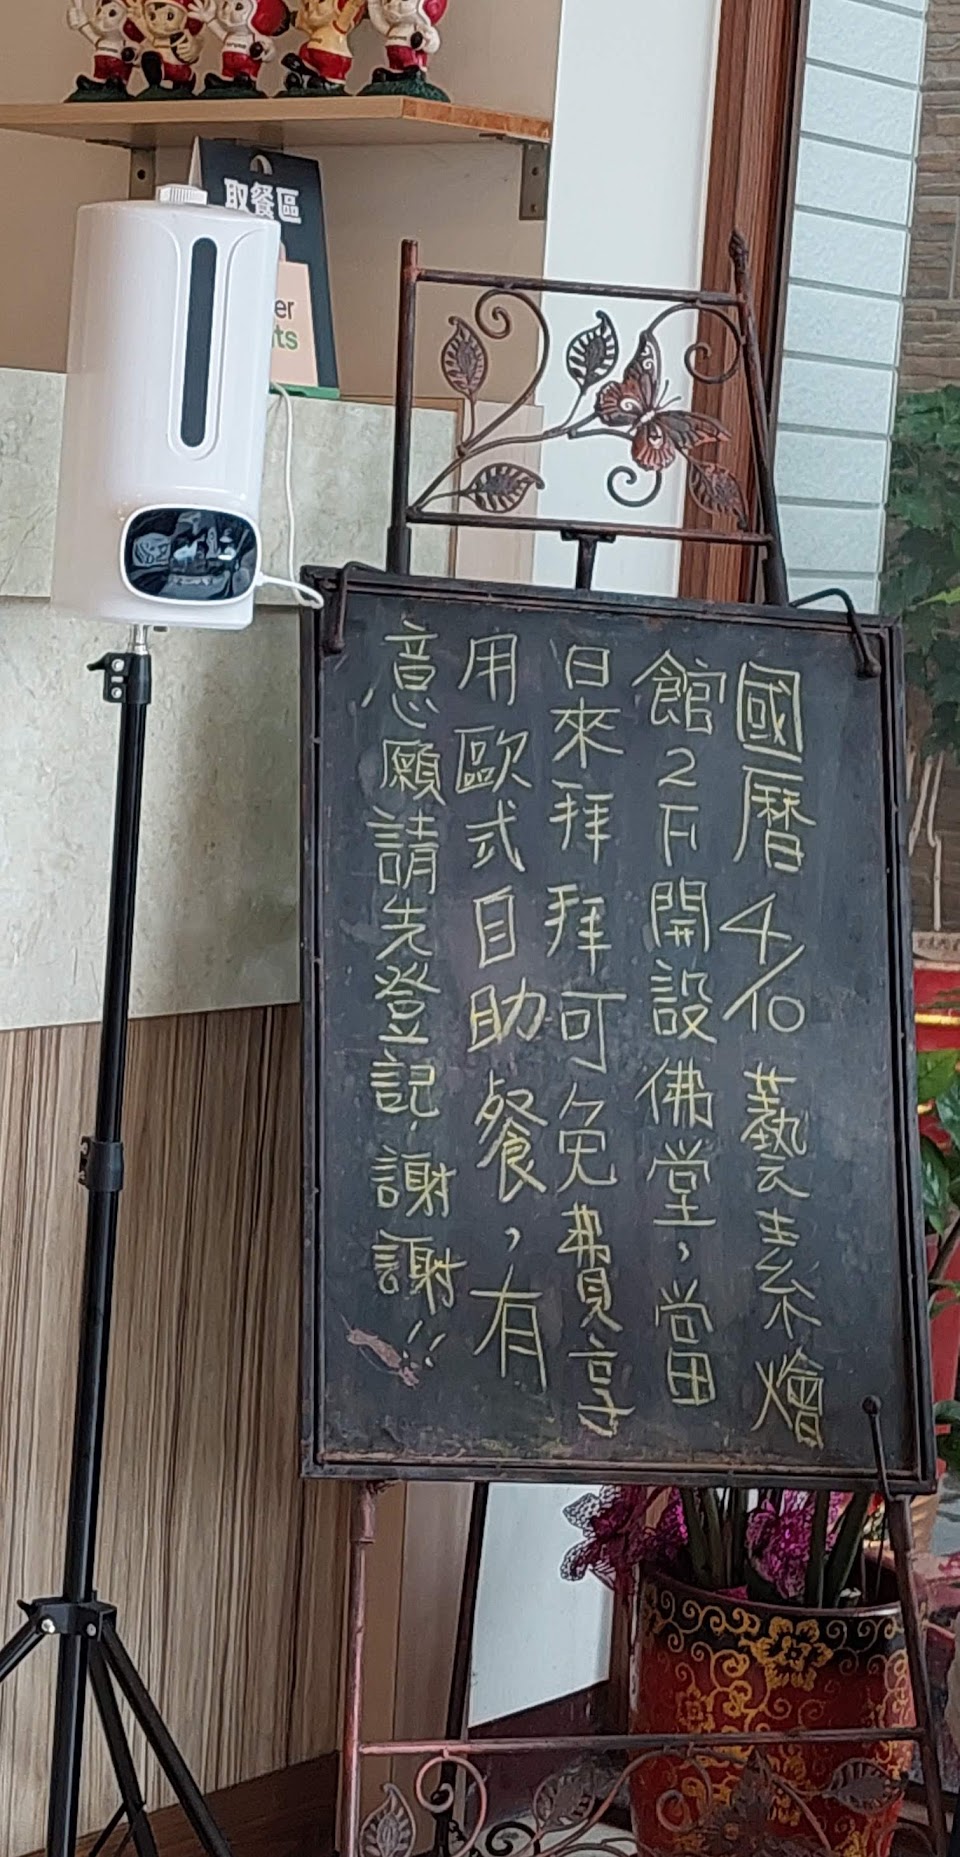 取餐區
er
ts
國曆4/10藝素燴
館2F開設佛堂，當
日來拜拜可免費享
用歐式自助餐，有
意願請先登記，謝謝!!